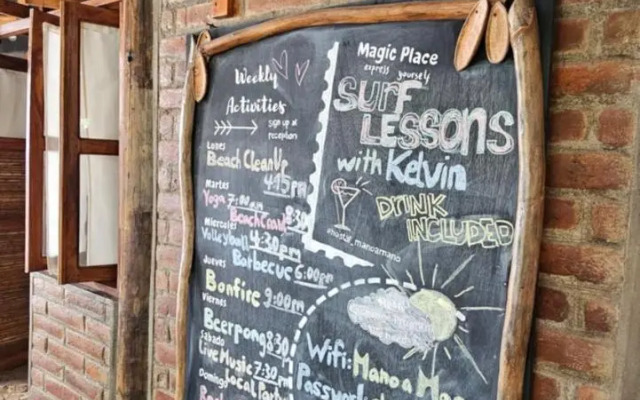 Weekly
Activities
sign up at
reception
Lunes
Beach CleanUp
4:15pm
Martes
Yoga 7:00am
Beach Crawl 8:30
Miercoles
Volleyball 4:30pm
Jueves
Barbecue 6:00pm
Bonfire 9:00pm
Viernes
Beerpong 8:30
Sabado
Live Music 7:30pm
Domingo
Local
Magic Place
express yourself
SURF
LESSONS
with Kelvin
DRINK
INCLUDED
#hostal_manoamano
Wifi: Mano a